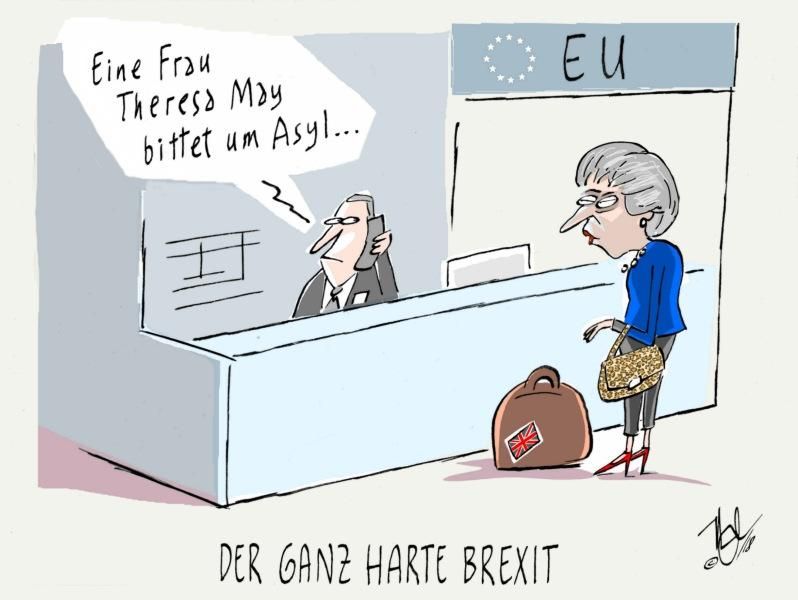 Eine Frau
Theresa May
bittet um Asyl...
EU
DER GANZ HARTE BREXIT